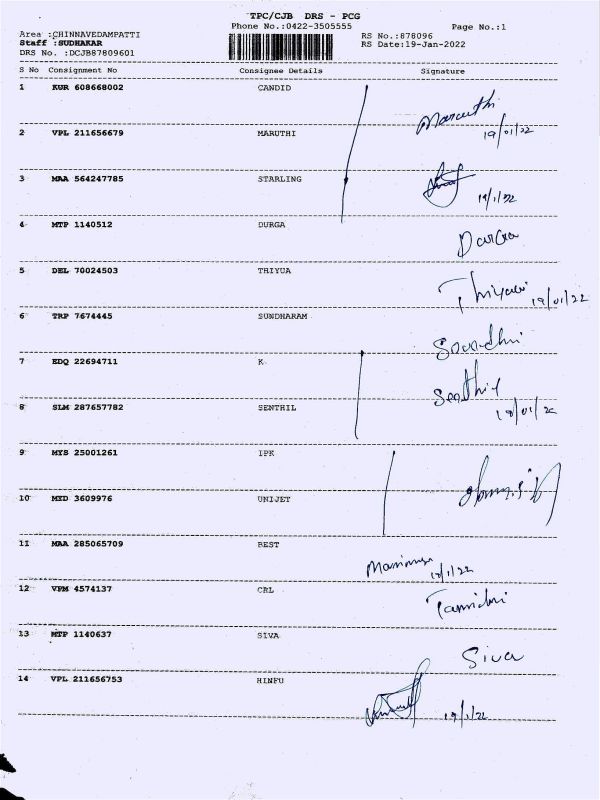 TPC/CJB DRS - PCG
Phone No.:0422-3505555
Page No.:1
Area :CHINNAVEDAMPATTI
RS No.:878096
Staff :SUDHAKAR
RS Date:19-Jan-2022
DRS No. :DCJB87809601
S No Consignment No Consignee Details Signature
1 KUR 608668002 CANDID
Maruthi
2 VPL 211656679 MARUTHI
19/01/22
3 MAA 564247785 STARLING
19/1/22
4 MTP 1140512 DURGA
Durga
5 DEL 70024503 THIYUA
19/01/22
6 TRP 7674445 SUNDHARAM
7 EDQ 22694711 K.
Senthil
8 SLM 287657782 SENTHIL
9 MYS 25001261 IPK
10 MYD 3609976 UNIJET
11 MAA 285065709 BEST
12 VPM 4574137 CRL
13 MTP 1140637 SIVA
Siva
14 VPL 211656753 HINFU
19/1/22